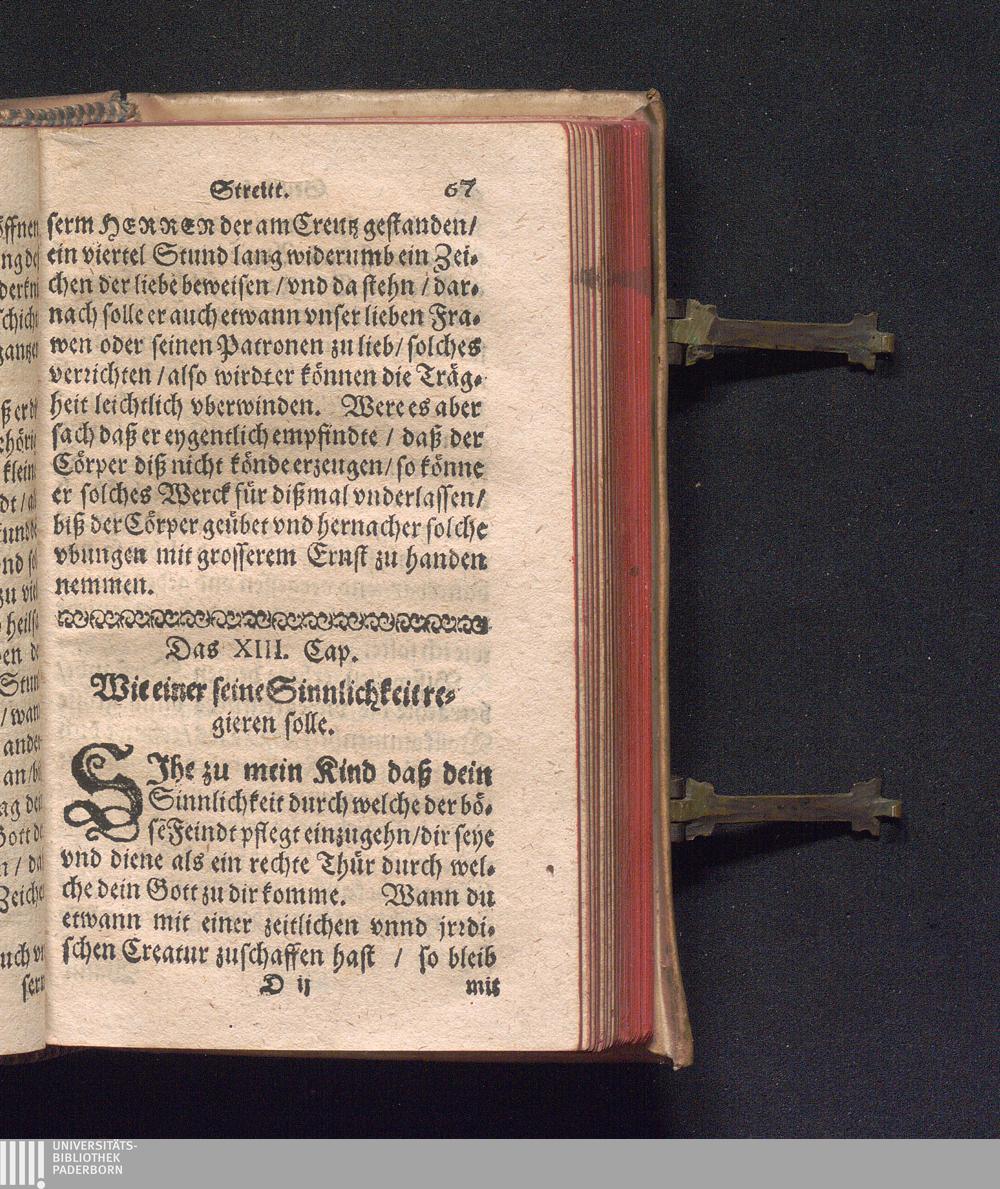 Streitt. 67
serm HERREN der am Creutz gestanden/
ein viertel Stund lang widerumb ein Zei-
chen der liebe beweisen / vnd da stehn / dar-
nach solle er auch etwann vnser lieben Fra-
wen oder seinen Patronen zu lieb / solches
verrichten / also wirdt er können die Träg-
heit leichtlich vberwinden. Were es aber
sach daß er eygentlich empfindte / daß der
Cörper diß nicht könde erzeugen / so könne
er solches Werck für dißmal vnderlassen/
biß der Cörper geübet vnd hernacher solche
vbungen mit grosserem Ernst zu handen
nemmen.
Das XIII. Cap.
Wie einer seine Sinnlichkeit re-
gieren solle.
SIhe zu mein Kind daß dein
Sinnlichkeit durch welche der bö-
se Feindt pflegt einzugehn/dir seye
vnd diene als ein rechte Thür durch wel-
che dein Gott zu dir komme. Wann du
etwann mit einer zeitlichen vnnd jrrdi-
schen Creatur zuschaffen hast / so bleib
D ij mit
UNIVERSITÄTS-
BIBLIOTHEK
PADERBORN